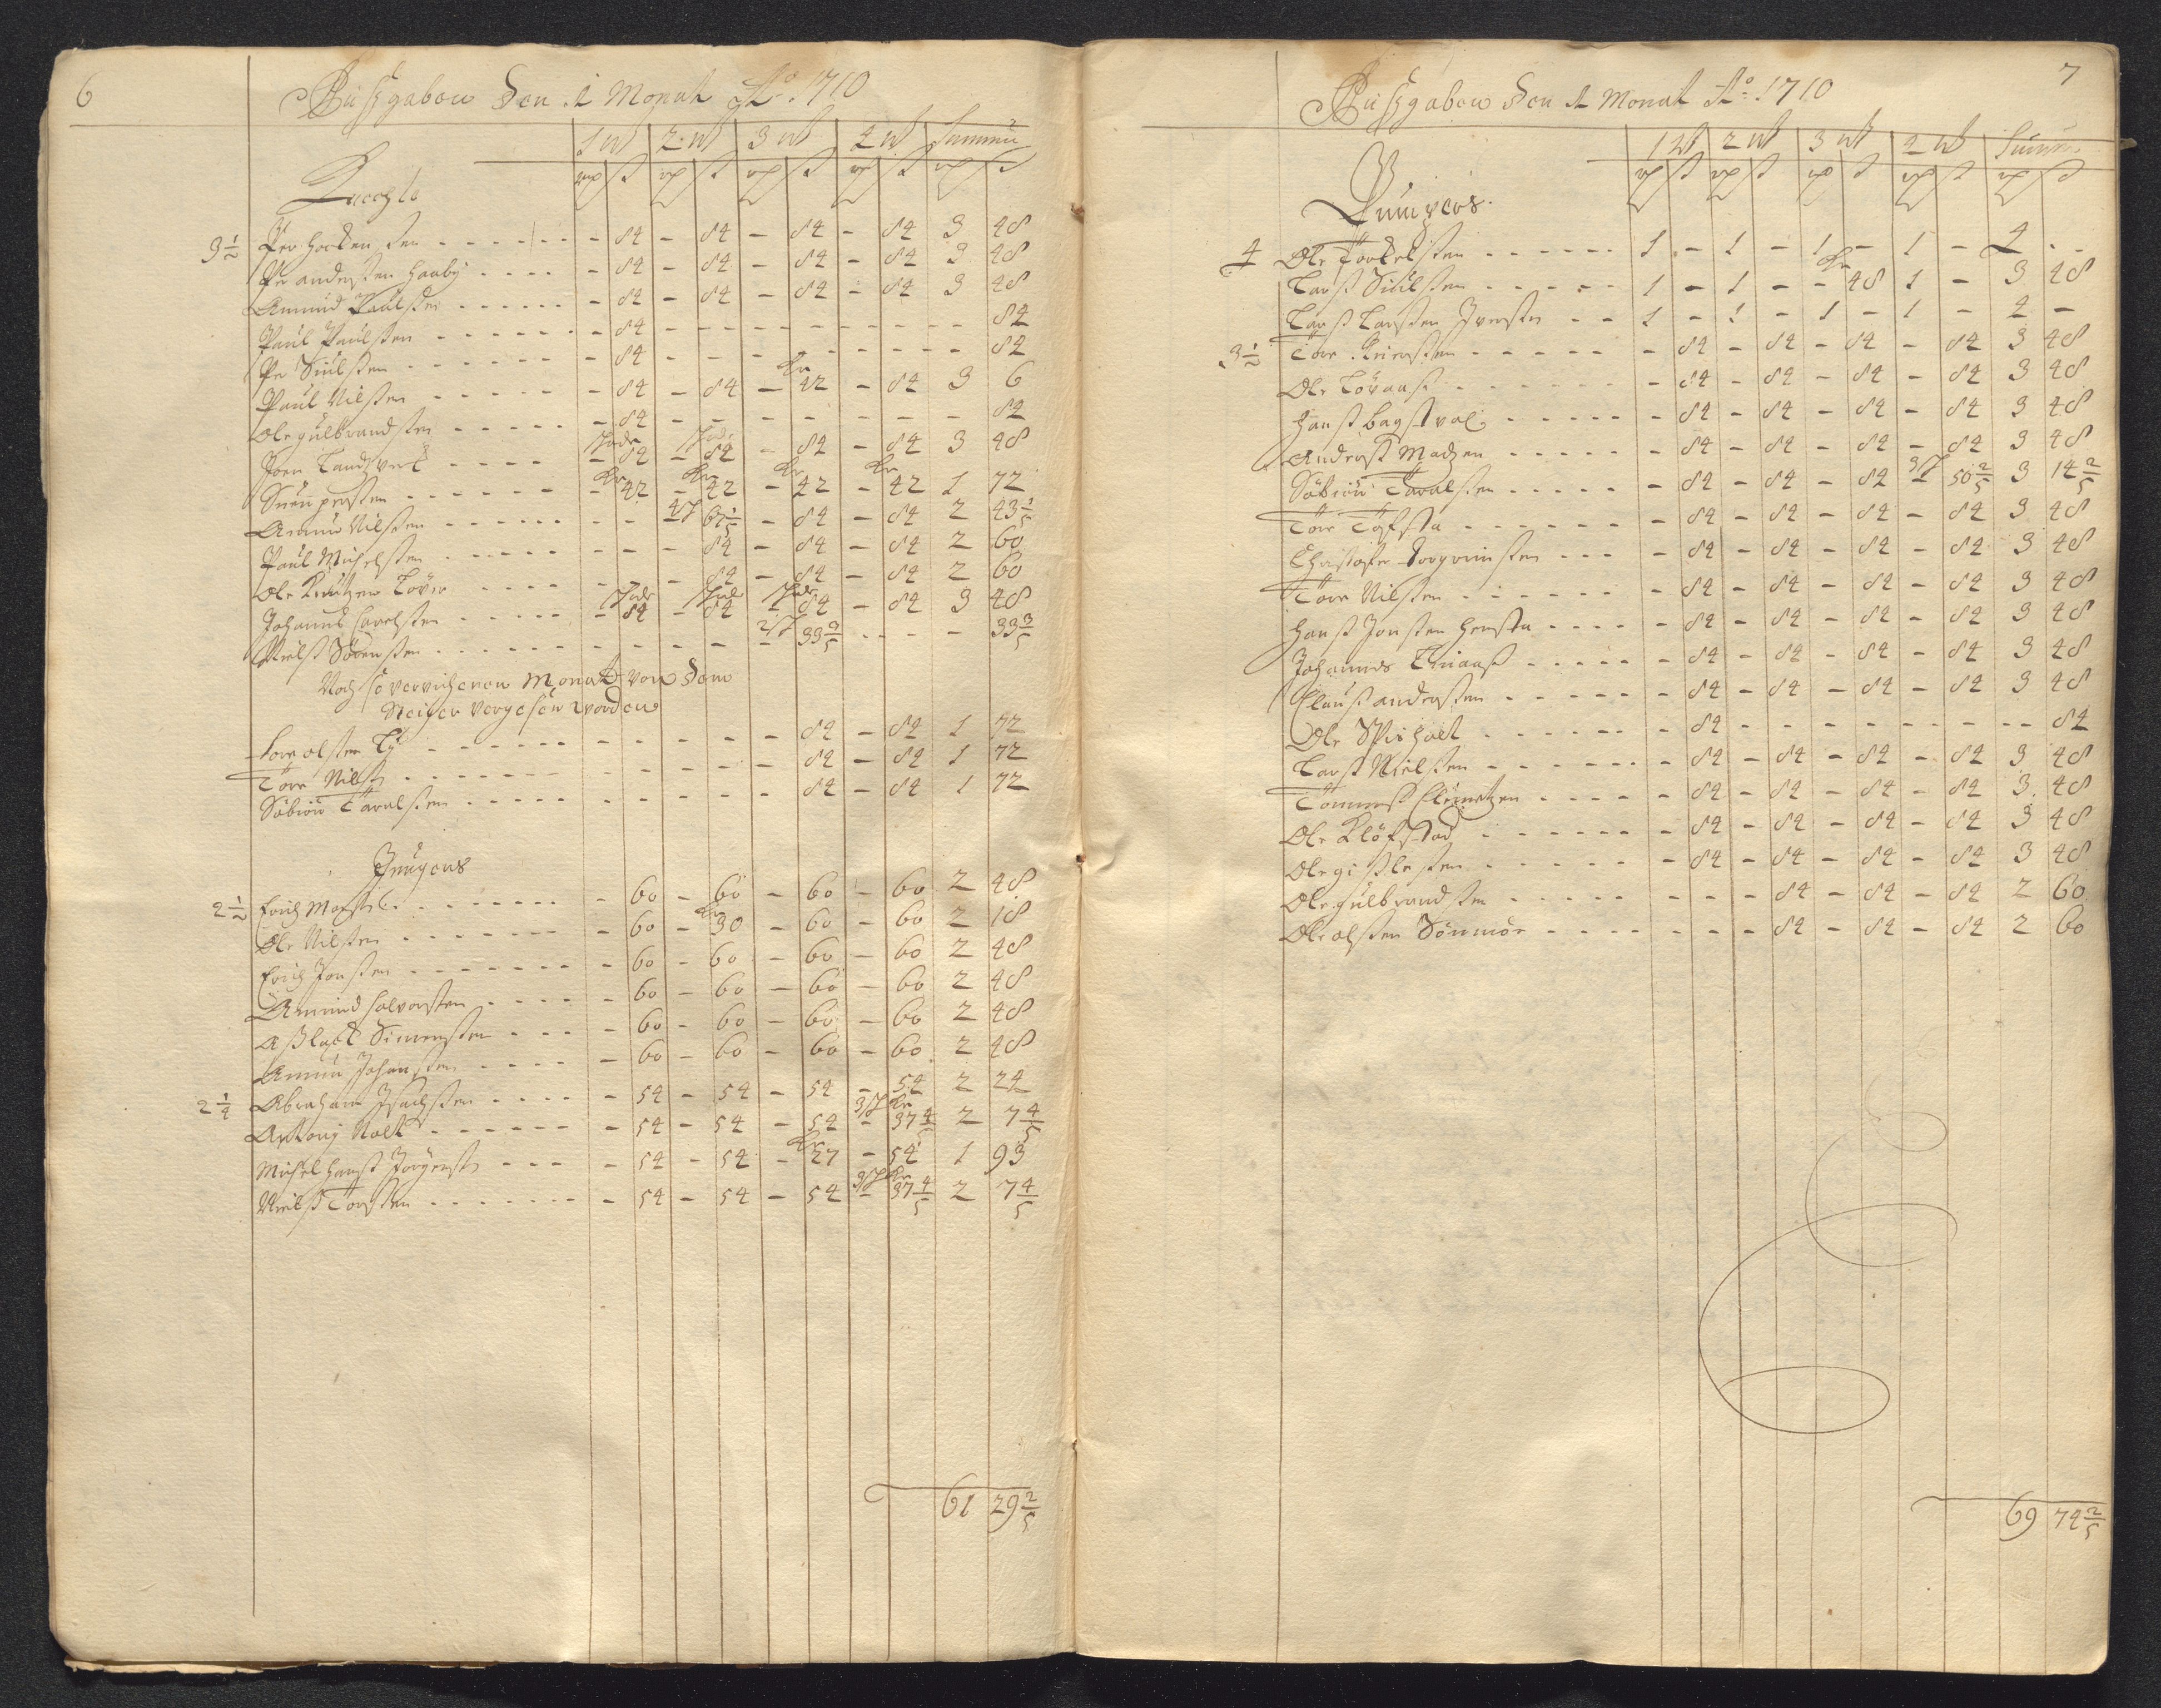 6
Außgaben den 1 Monat Ao. 1710
1 W 2 W 3 W 4 W Summa
rp ß rp ß rp ß rp ß rp ß
Knechte
3 1/2 Per Hocken sen - 84 - 84 - 84 - 84 3 48
Per andersen Haaby - 84 - 84 - 84 - 84 3 48
Amund Paulsen - 84 - 84 - 84 - 84 3 48
Paul Paulsen - 84 - - - - - - - 84
Per Siulsen - 84 - - - - - - - 84
Paul Nilsen - 84 - 84 - Kr 42 - 84 3 6
Ole gulbrandsen - 84 - - - - - - - 84
Joen Landtverk - 84 - 84 - 84 - 84 3 48
Suen persen - Kr 42 - Kr 42 - Kr 42 - Kr 42 1 72
Amun Nilsen - - 4 S 67 1/5 - 84 - 84 2 43 1/5
Paul Michelsen - - - 84 - 84 - 84 2 60
Ole Knutzen Löver - - - 84 - 84 - 84 2 60
Johannes Carelsen - 84 - 84 - 84 - 84 3 48
Nielß Sörensen - - - - 2 S 33 3/5 - - 33 3/5
Noch so vorvichenen Monat von dem
Steiger vergesen worden
Tore olsen Ty - - - - - 84 - 84 1 72
Töre Nilsen - - - - - 84 - 84 1 72
Söbiön Taralsen - - - - - 84 - 84 1 72
Jungens
2 1/2 Erich - 60 - 60 - 60 - 60 2 48
Ole Nilsen - 60 - Kr 30 - 60 - 60 2 18
Erich Jonsen - 60 - 60 - 60 - 60 2 48
Amund Halvorsen - 60 - 60 - 60 - 60 2 48
Aßlack Simensen - 60 - 60 - 60 - 60 2 48
Amun Johansen - 60 - 60 - 60 - 60 2 48
2 1/4 Abraham Isachsen - 54 - 54 - 54 - 54 2 24
Antony Nolt - 54 - 54 - 54 3 S Kr - 37 4/5 2 7 4/5
Michel Hanß Jörgensen - 54 - 54 - Kr 27 - 54 1 93
Nielß Torsen - 54 - 54 - 54 3 S Kr - 37 4/5 2 7 4/5
61 29 2/5
7
Außgaben den 1 Monat Ao. 1710
1 W 2 W 3 W 4 W Summa
rp ß rp ß rp ß rp ß rp ß
Pumpers
4 Ole Torkelsen 1 - 1 - 1 - 1 - 4 -
Larß Siulsen 1 - 1 - - Kr 48 1 - 3 48
Larß Larsen Iversen 1 - 1 - 1 - 1 - 4 -
3 1/2 Töre Reiersen - 84 - 84 - 84 - 84 3 48
Ole Lövaas - 84 - 84 - 84 - 84 3 48
Hanß bagstval - 84 - 84 - 84 - 84 3 48
Anderß Madzen - 84 - 84 - 84 - 84 3 48
Söbiön Taralsen - 84 - 84 - 84 3 S 50 2/5 3 14 2/5
Töre Töfsta - 84 - 84 - 84 - 84 3 48
Christofer Torgrimsen - 84 - 84 - 84 - 84 3 48
Töre Nilsen - 84 - 84 - 84 - 84 3 48
Hanß Jonsen Hensta - 84 - 84 - 84 - 84 3 48
Johannes - 84 - 84 - 84 - 84 3 48
Clauß andersen - 84 - 84 - 84 - 84 3 48
Ole Spisholt - 84 - - - - - - - 84
Larß Nielsen - 84 - 84 - 84 - 84 3 48
Tommeß Clemetzen - 84 - 84 - 84 - 84 3 48
Ole Klöfstad - 84 - 84 - 84 - 84 3 48
Ole gißlesen - 84 - 84 - 84 - 84 3 48
Ole gulbrandsen - - - 84 - 84 - 84 2 60
Ole olsen Sönmör - - - 84 - 84 - 84 2 60
69 74 2/5